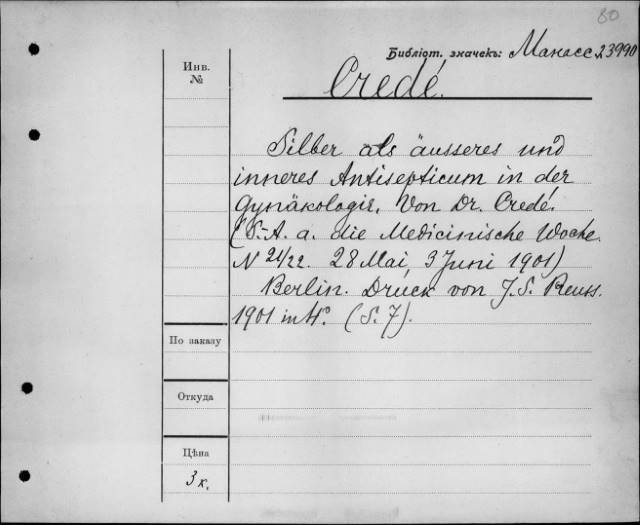 80
Библіот. значекъ: Манасс 23990
Инв.
№
Credé.
Silber als äusseres und
inneres Antisepticum in der
Gynäkologie. Von Dr. Credé.
(S.-A. a. die Medicinische Woche.
N 21/22. 28 Mai, 3 Juni 1901)
Berlin. Druck von J. S. Preuss.
1901 in 4°. (S. 7).
По заказу
Откуда
Цѣна
3 к.